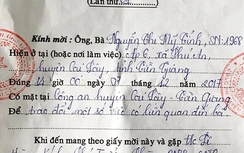 Lần thứ
Kính mời : Ông, Bà Nguyễn Thị Mỹ Trinh, SN: 1968
Hiện ở tại (hoặc nơi làm việc) ấp 6, xã Phú
huyện Cai Lậy, tỉnh Tiền Giang
Đúng 14 giờ 00 ngày 07 tháng 12 năm 2017
Có mặt tại Công an huyện Cai Lậy - Tiền Giang
Để trao đổi một số việc có liên quan đến bà
Khi đến mang theo giấy mời này và gặp